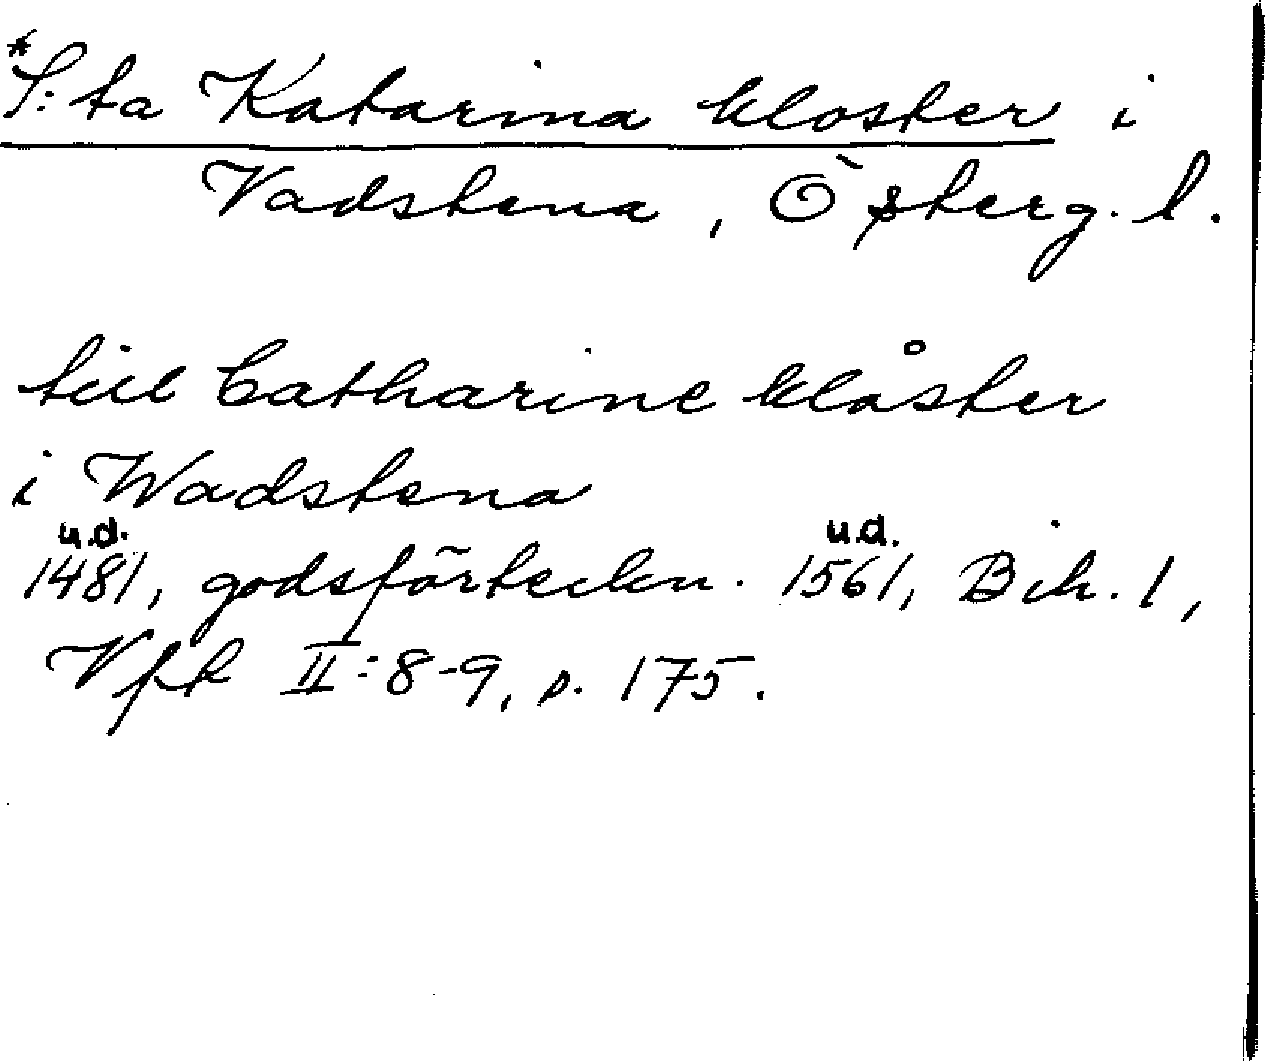 *S:ta Katarina kloster i
Vadstena, Österg. l.
till Catharine klåster
i Wadstena
u.d. u.d.
1481, godsförteckn. 1561, Bih. 1,
Vfk II:8-9, p. 175.